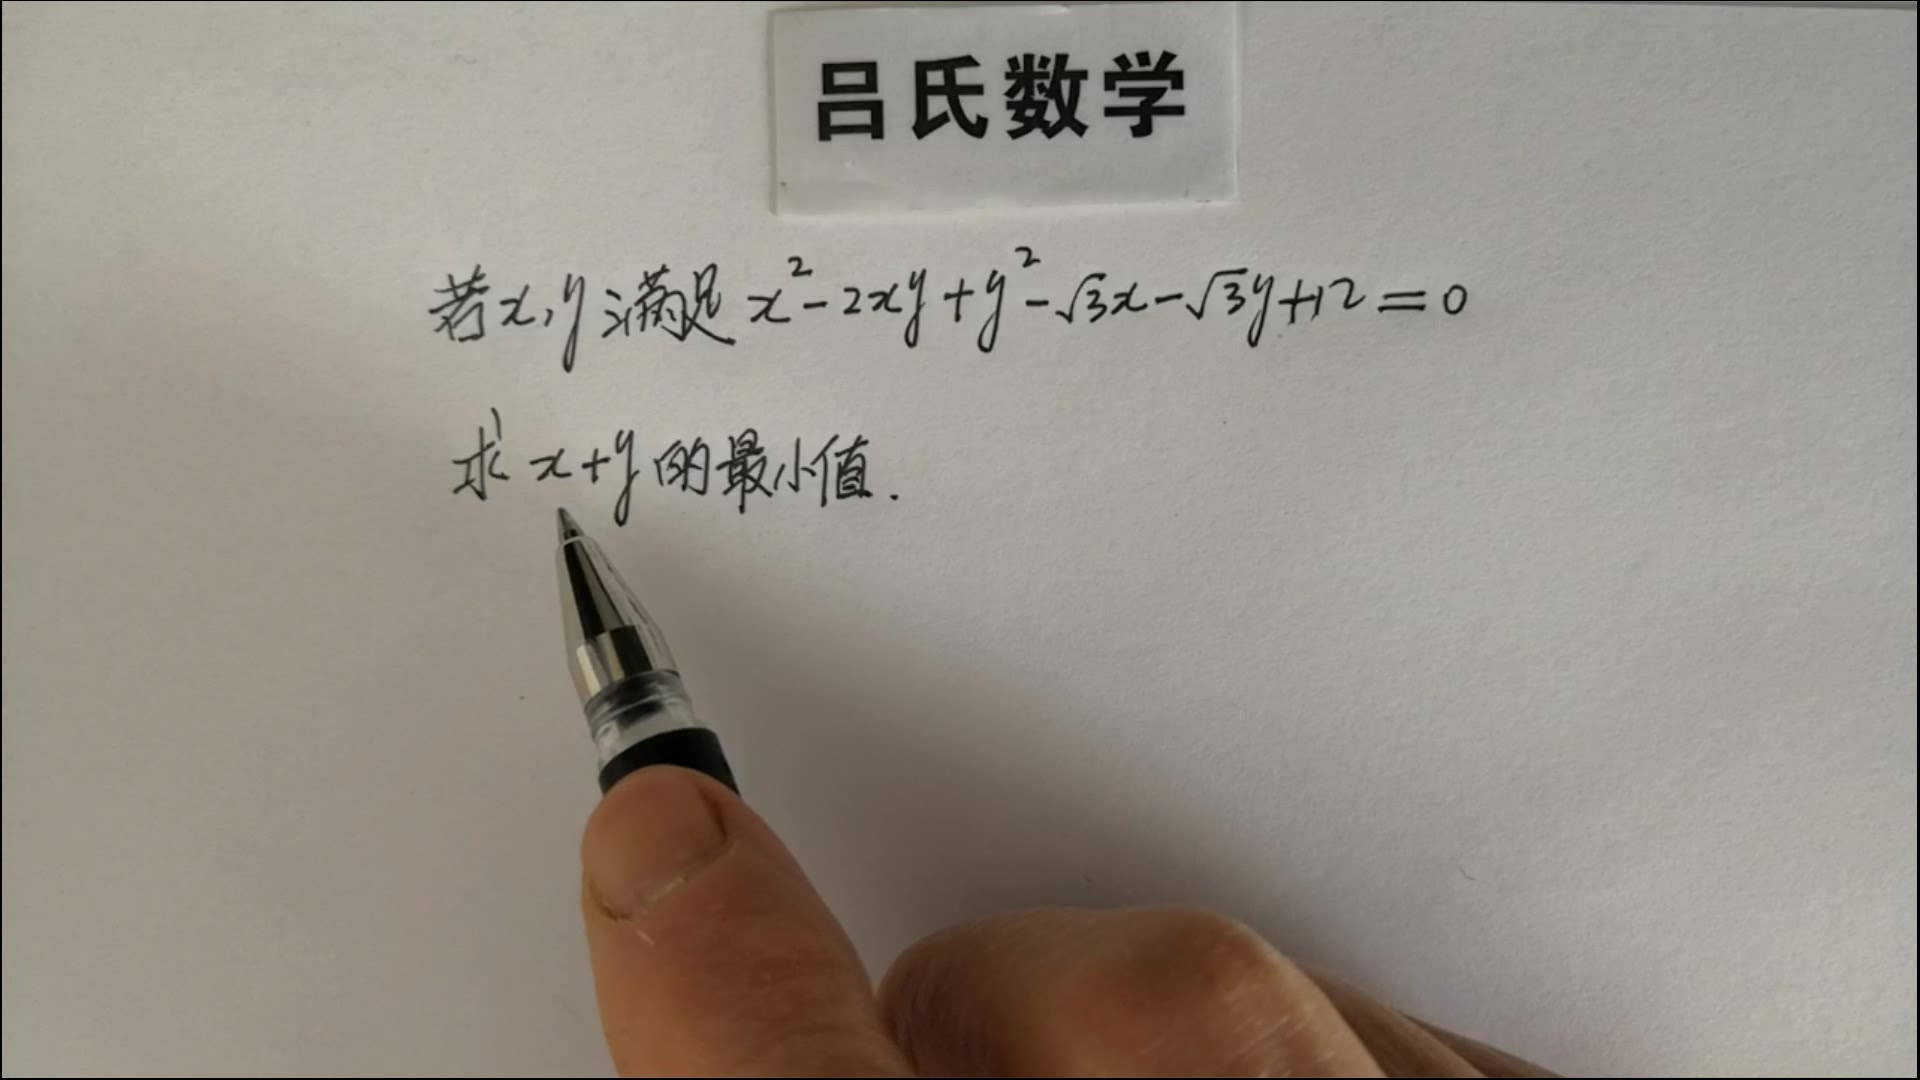 吕氏数学
若x,y满足 x²-2xy+y²-√3x-√3y+12=0
求x+y的最小值.